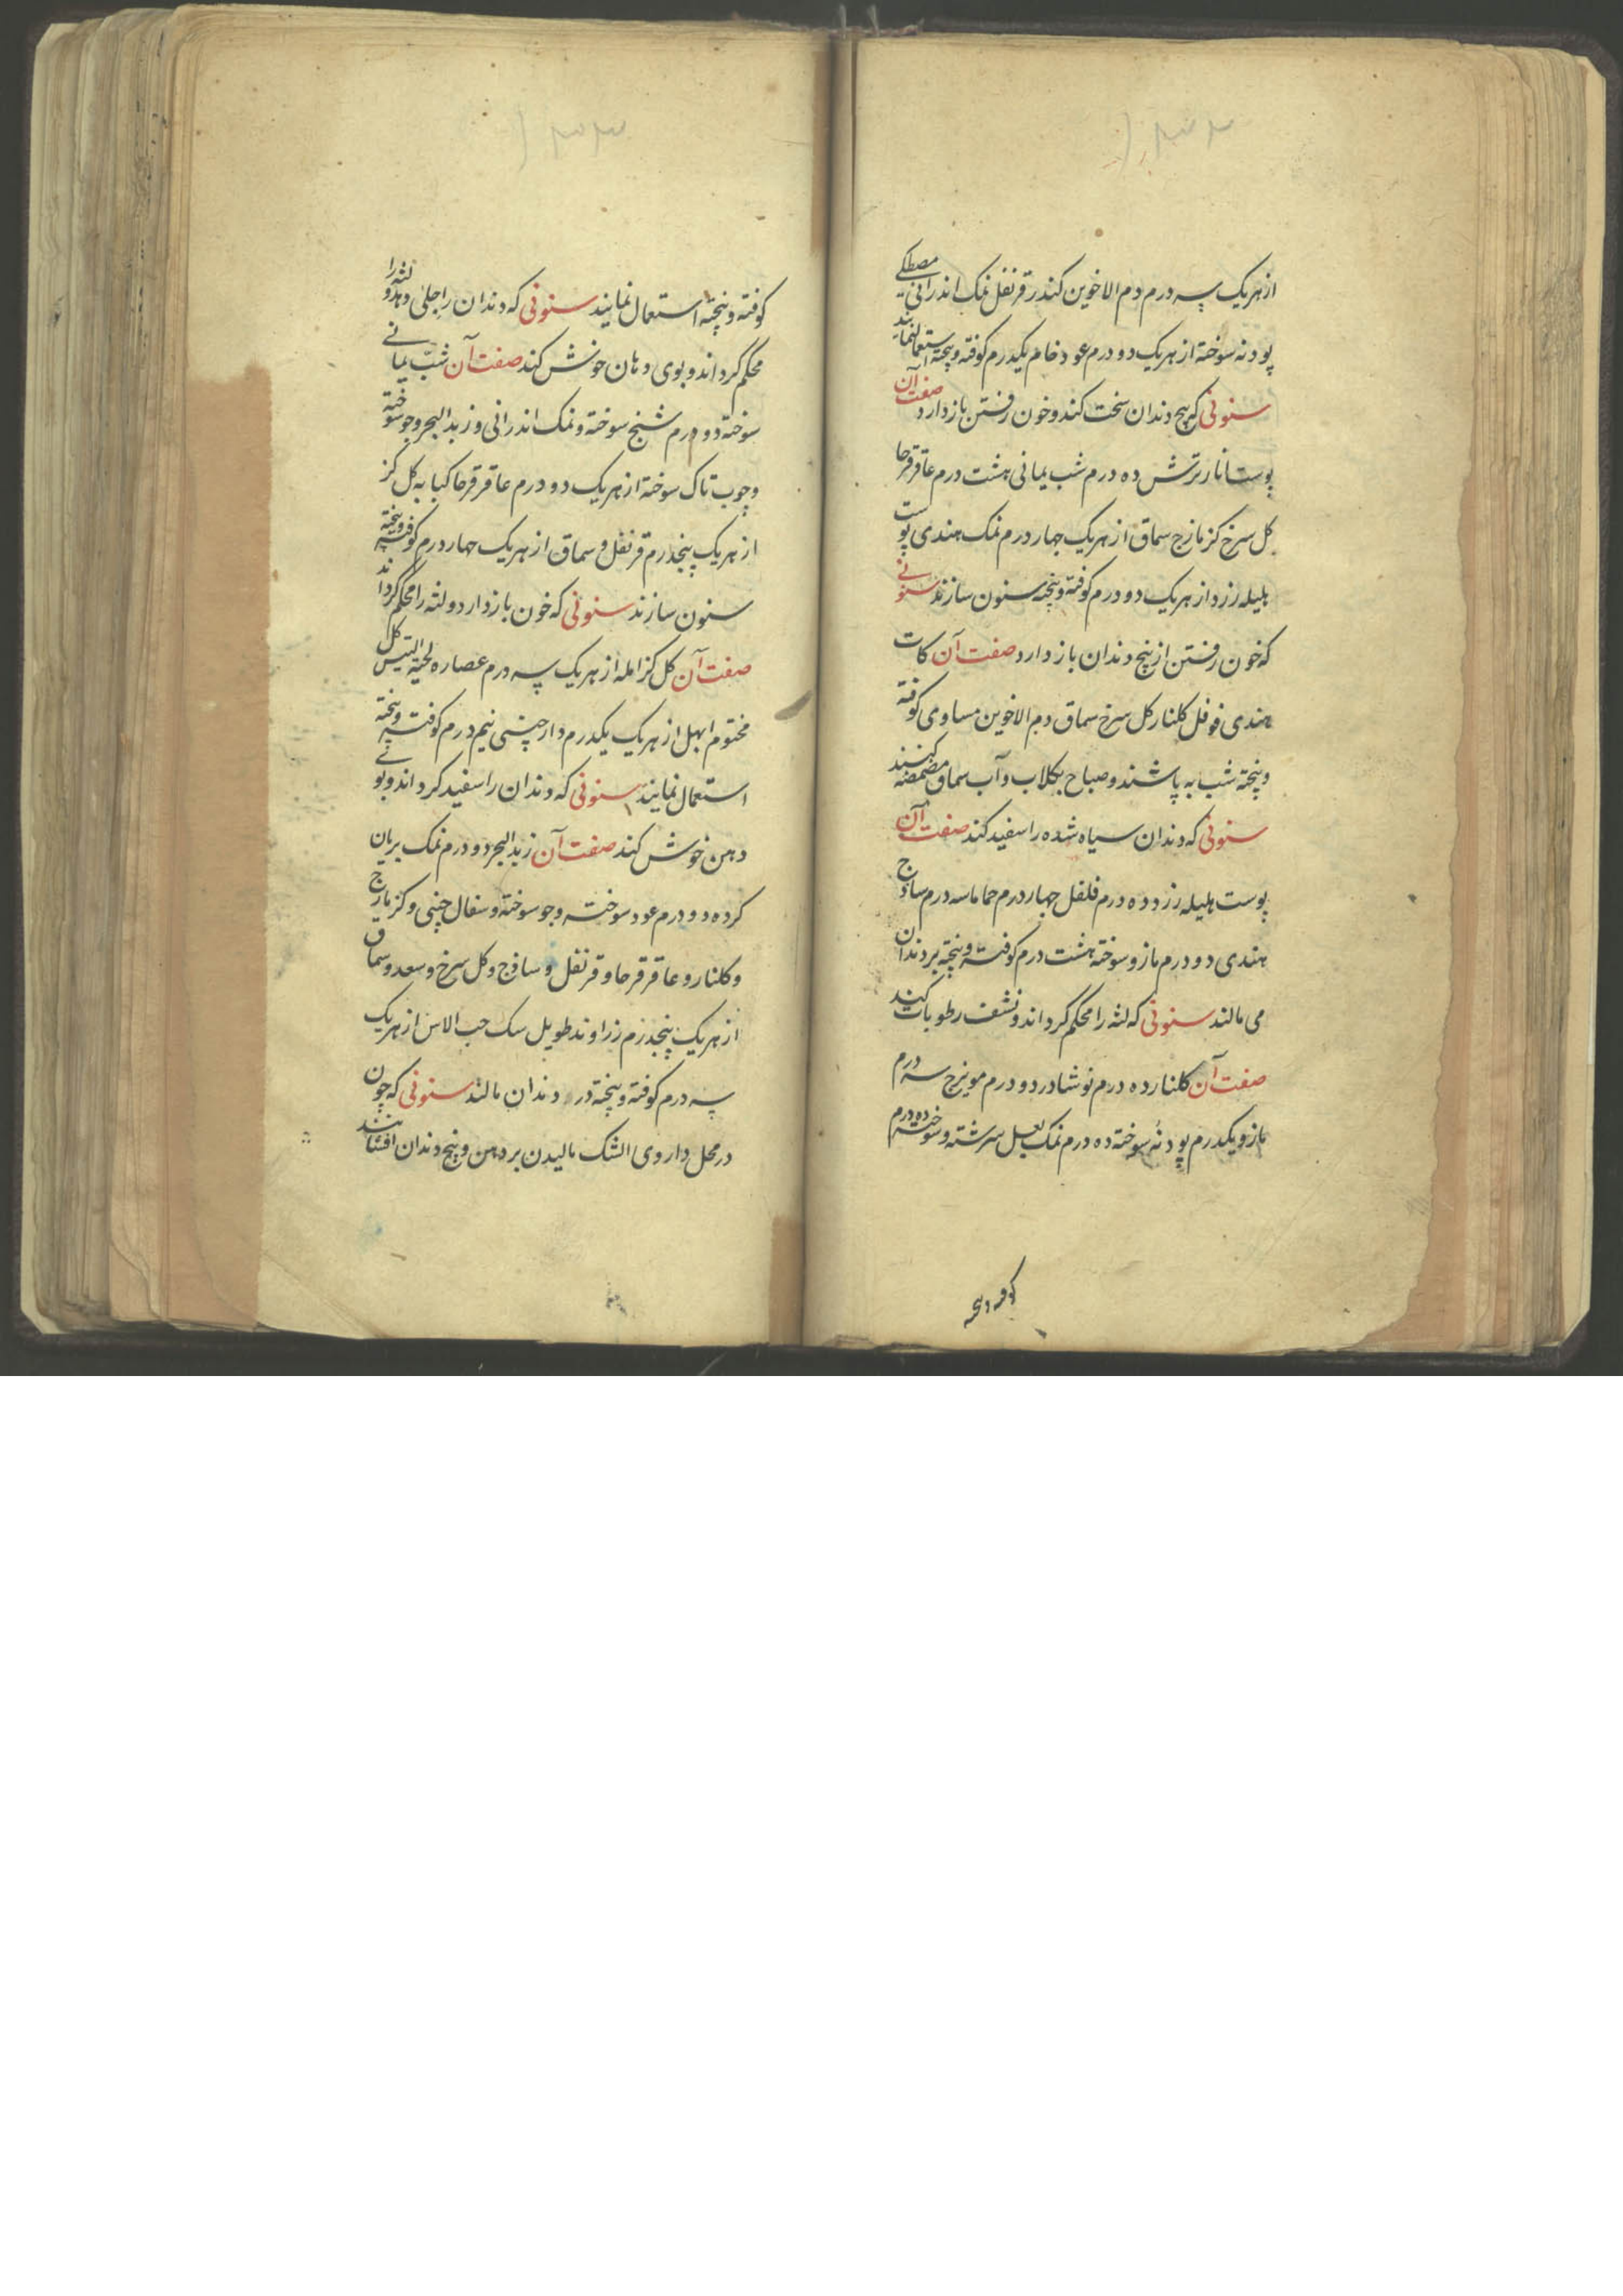 از هر یک سه درم دم الاخوین کندر قرنفل نمک اندرانی مصطکی
پودنه سوخته از هر یک دو درم عود خام یکدرم کوفته و بیخته استعمال نمایند
سنونی که بیخ دندان سخت کند و خون رفتن باز دارد صفت آن
پوست انار ترش ده درم شب یمانی هشت درم عاقرقرحا
کل سرخ کزمازج سماق از هر یک چهار درم نمک هندی پوست
هلیله زرد از هر یک دو درم کوفته و بیخته سنون سازند سنونی
که خون رفتن از بیخ دندان باز دارد صفت آن کات
هندی فوفل کلنار کل سرخ سماق دم الاخوین مساوی کوفته
و بیخته شب به پاشند و صباح بکلاب و آب سماق مضمضه کنند
سنونی که دندان سیاه شده را سفید کند صفت آن
پوست هلیله زرد ده درم فلفل چهار درم حماما سه درم ساذج
هندی دو درم مازو سوخته هشت درم کوفته و بیخته بر دندان
می مالند سنونی که لثه را محکم کرداند و نشف رطوبات کند
صفت آن کلنار ده درم نوشادر دو درم مویزج سه درم
مازو یکدرم پودنهٔ سوخته ده درم نمک بعسل سرشته و سوخته ده درم
کوفته و بیخته
کوفته و بیخته استعمال نمایند سنونی که دندان را جلی دهد و لثه را
محکم کرداند و بوی دهان خوش کند صفت آن شب یمانی
سوخته دو درم شنج سوخته و نمک اندرانی و زبد البحر و جو سوخته
و چوب تاک سوخته از هر یک دو درم عاقرقرحا کبابه کل کز
از هر یک پنجدرم قرنفل و سماق از هر یک چهار درم کوفته و بیخته
سنون سازند سنونی که خون باز دارد و لثه را محکم کرداند
صفت آن کل کز امله از هر یک سه درم عصاره لحیة التیس کل
مختوم ابهل از هر یک یکدرم دارچینی نیم درم کوفته و بیخته
استعمال نمایند سنونی که دندان را سفید کرداند و بوی
دهن خوش کند صفت آن زبد البحر دو درم نمک بریان
کرده دو درم عود سوخته و جو سوخته و سفال چینی و کزمازج
و کلنار و عاقرقرحا و قرنفل و ساذج و کل سرخ و سعد و سماق
از هر یک پنجدرم زراوند طویل سک حب الاس از هر یک
سه درم کوفته و بیخته در دندان مالند سنونی که چون
در محل داروی الشک مالیدن بر دهن و بیخ دندان افشانند